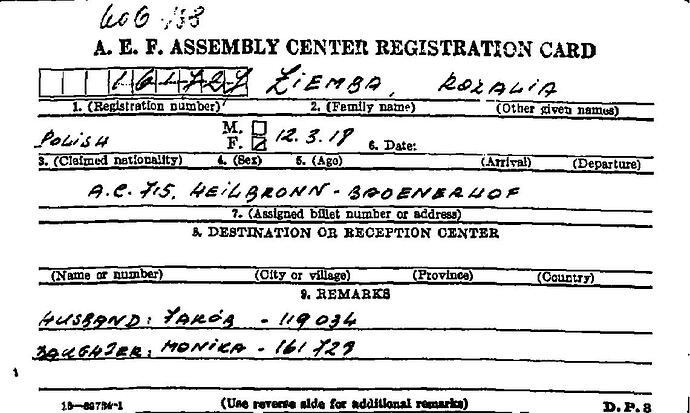 606-138
A. E. F. ASSEMBLY CENTER REGISTRATION CARD
161727 ZIEMBA, ROZALIA
1. (Registration number) 2. (Family name) (Other given names)
POLISH M. F. 12.3.18 6. Date:
3. (Claimed nationality) 4. (Sex) 5. (Age) (Arrival) (Departure)
A.C. 715. HEILBRONN - BADENERHOF
7. (Assigned billet number or address)
8. DESTINATION OR RECEPTION CENTER
(Name or number) (City or village) (Province) (Country)
9. REMARKS
HUSBAND: JAKÓB - 119034
DAUGHTER: MONIKA - 161729
(Use reverse side for additional remarks) D.P. 3